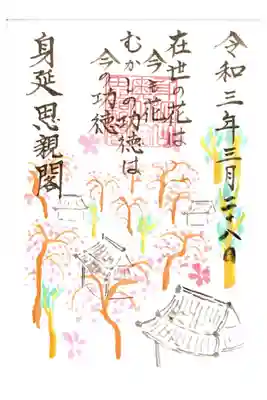 令和三年三月二十八日
在世の花は
今の花
むかしの功徳は
今の功徳
身延思親閣